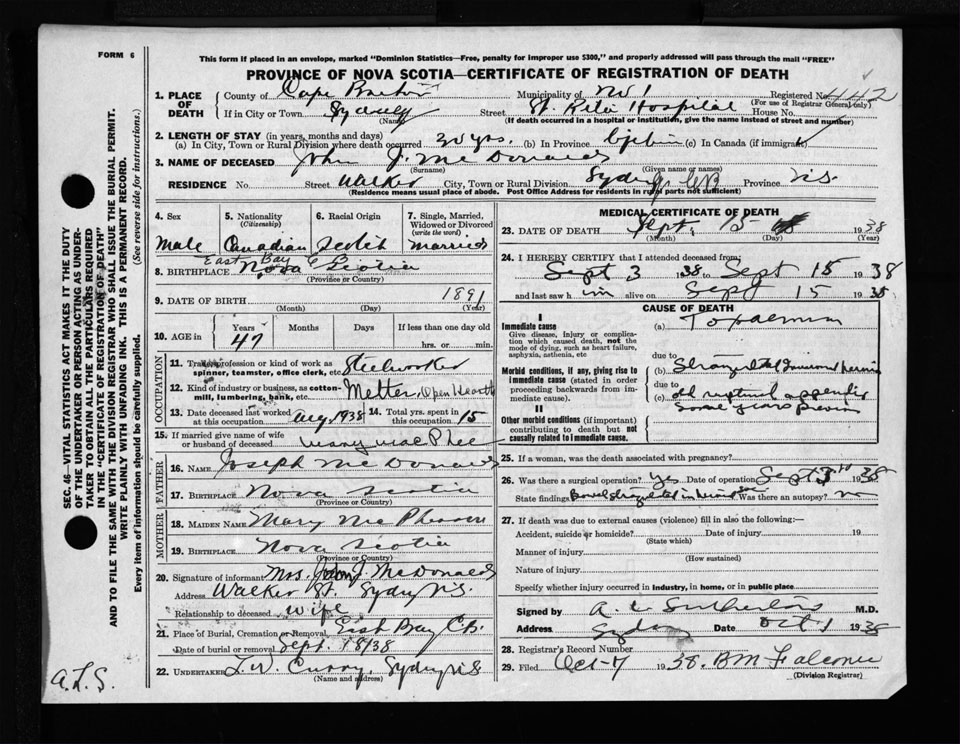 FORM 6
This form if placed in an envelope, marked "Dominion Statistics—Free, penalty for improper use $300," and properly addressed will pass through the mail "FREE"
PROVINCE OF NOVA SCOTIA—CERTIFICATE OF REGISTRATION OF DEATH
1. PLACE OF DEATH
County of Cape Breton Municipality of No 1 Registered No. 442
(For use of Registrar General only)
If in City or Town Sydney Street St. Rita Hospital House No.
(Name) (If death occurred in a hospital or institution, give the name instead of street and number)
2. LENGTH OF STAY (in years, months and days)
(a) In City, Town or Rural Division where death occurred 20 yrs. (b) In Province Lifetime (c) In Canada (if immigrant)
3. NAME OF DECEASED John J. McDonald
(Surname) (Given name or names)
RESIDENCE No. Street Walker City, Town or Rural Division Sydney CB Province N.S.
(Residence means usual place of abode. Post Office Address for residents in rural parts not sufficient)
4. Sex Male
5. Nationality (Citizenship) Canadian
6. Racial Origin Scotch
7. Single, Married, Widowed or Divorced (write the word) Married
8. BIRTHPLACE East Bay C B Nova Scotia
(Province or Country)
9. DATE OF BIRTH 1891
(Month) (Day) (Year)
10. AGE in Years 47 Months Days If less than one day old hrs. or min.
OCCUPATION
11. Trade, profession or kind of work as spinner, teamster, office clerk, etc. Steelworker
12. Kind of industry or business, as cotton-mill, lumbering, bank, etc. Melter, Open Hearth
13. Date deceased last worked at this occupation Aug, 1938 14. Total yrs. spent in this occupation 15
15. If married give name of wife or husband of deceased Mary MacPhee
FATHER
16. NAME Joseph McDonald
17. BIRTHPLACE Nova Scotia
(Province or Country)
MOTHER
18. MAIDEN NAME Mary McPherson
19. BIRTHPLACE Nova Scotia
(Province or Country)
20. Signature of informant Mrs. John J. McDonald
Address Walker St. Sydney N.S.
Relationship to deceased wife
21. Place of Burial, Cremation or Removal East Bay C.B.
Date of burial or removal Sept. 18/38
22. UNDERTAKER L. W. Curry, Sydney N.S
(Name and address)
MEDICAL CERTIFICATE OF DEATH
23. DATE OF DEATH Sept. 15 1938
(Month) (Day) (Year)
24. I HEREBY CERTIFY that I attended deceased from:
Sept 3 1938 to Sept 15 1938
and last saw him alive on Sept 15 1938
CAUSE OF DEATH
I
Immediate cause
Give disease, injury or complication which caused death, not the mode of dying, such as heart failure, asphyxia, asthenia, etc
(a) Toxaemia
due to
Morbid conditions, if any, giving rise to immediate cause (stated in order proceeding backwards from immediate cause).
(b) Strangulated hernia
due to
(c) old ruptured appendix
some years previous
II
Other morbid conditions (if important) contributing to death but not causally related to immediate cause.
25. If a woman, was the death associated with pregnancy?
26. Was there a surgical operation? Yes Date of operation Sept 3rd 1938
State findings Bowel strangulated Was there an autopsy? no
27. If death was due to external causes (violence) fill in also the following:—
Accident, suicide or homicide? Date of injury 19
(State which)
Manner of injury
(How sustained)
Nature of injury
Specify whether injury occurred in industry, in home, or in public place
Signed by A. C. Sutherland M.D.
Address Sydney Date Oct 1 1938
28. Registrar's Record Number
29. Filed Oct-7 1938. B M Falconer
(Division Registrar)
SEC. 46—VITAL STATISTICS ACT MAKES IT THE DUTY
OF THE UNDERTAKER OR PERSON ACTING AS UNDER-
TAKER TO OBTAIN ALL THE PARTICULARS REQUIRED
IN THE "CERTIFICATE OF REGISTRATION OF DEATH"
AND TO FILE THE SAME WITH THE DIVISION REGISTRAR WHO SHALL ISSUE THE BURIAL PERMIT.
WRITE PLAINLY WITH UNFADING INK. THIS IS A PERMANENT RECORD.
Every item of information should be carefully supplied. (See reverse side for instructions.)
A.L.S.